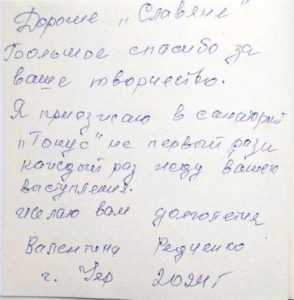 Дорогие „Славяне"
Большое спасибо за
ваше творчество.
Я приезжаю в санаторий
„Тонус" не первый раз и
каждый раз жду вашего
выступления.
желаю вам долголетия
Валентина Редченко
г. 2024г